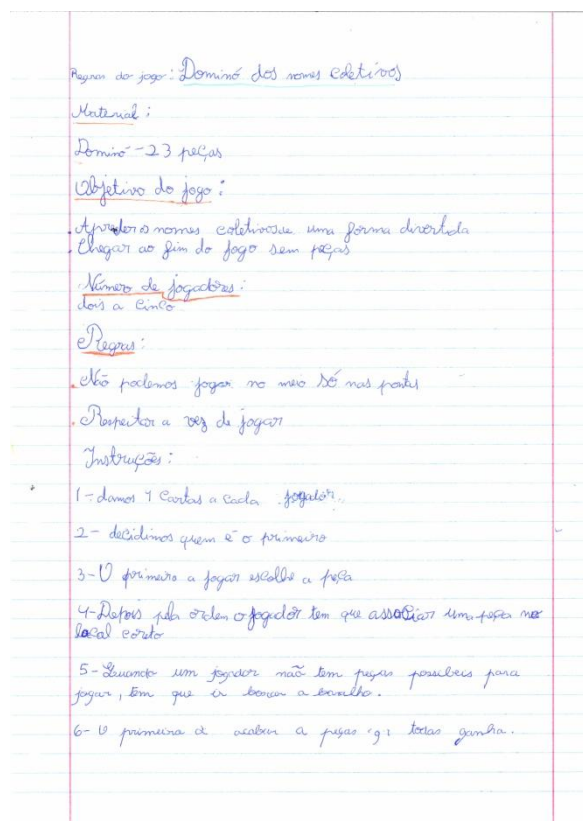 Regras do jogo: Dominó dos nomes coletivos
Material:
Dominó - 23 peças
Objetivo do jogo:
. Aprender os nomes coletivos de uma forma divertida
. Chegar ao fim do jogo sem peças
Número de jogadores:
dois a cinco
Regras:
. Não podemos jogar no meio só nas pontas
. Respeitar a vez de jogar
Instruções:
1 - damos 4 Cartas a cada jogador.
2 - decidimos quem é o primeiro
3 - O primeiro a jogar escolhe a peça
4 - Depois pela ordem o jogador tem que associar uma peça no
local coreto
5 - Quando um jogador não tem peças possibeis para
jogar, tem que ir buscar a baralho.
6 - O primeira a acabar a peças todas ganha.